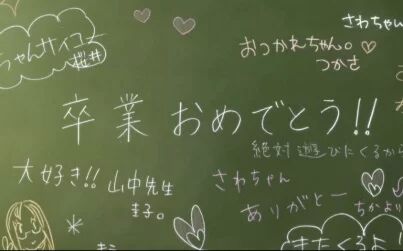 さわちゃん
ちゃんサイコー
桜井
おつかれちゃん。
つかさ
卒業おめでとう!!
絶対遊びにくるから
大好き!!山中先生
圭子。
さわちゃん
ありがとー
ちかより